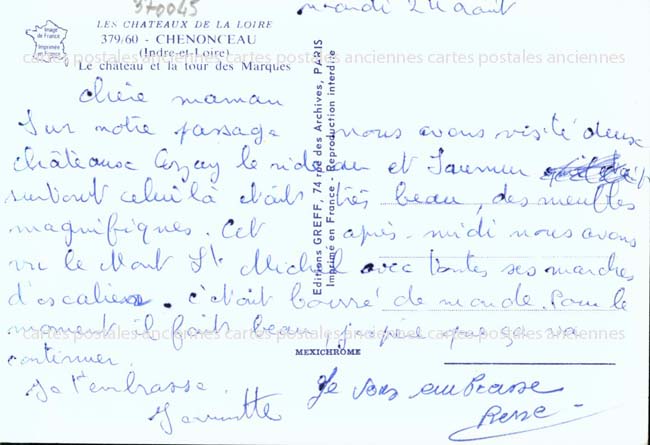 370045
24 août
Image de France
Imprimée en France
LES CHATEAUX DE LA LOIRE
379/60 - CHENONCEAU
(Indre-et-Loire)
Le château et la tour des Marques
cartes postales anciennes cartes postales anciennes cartes postales anciennes
Editions GREFF, 74 rue des Archives, PARIS
Imprimé en France - Reproduction interdite
MEXICHROME
chère maman
Sur notre passage nous avons visité deux
châteaux Azay le rideau et Saumur
surtout celui là était très beau, des meubles
magnifiques. Cet après-midi nous avons
vu le Mont St Michel avec toutes ses marches
d'escalier. c'était bourré de monde. Pour le
moment il fait beau, j'espère que ça va
continuer.
cartes postales anciennes cartes postales anciennes cartes postales anciennes
Je t'embrasse.
Je vous embrasse